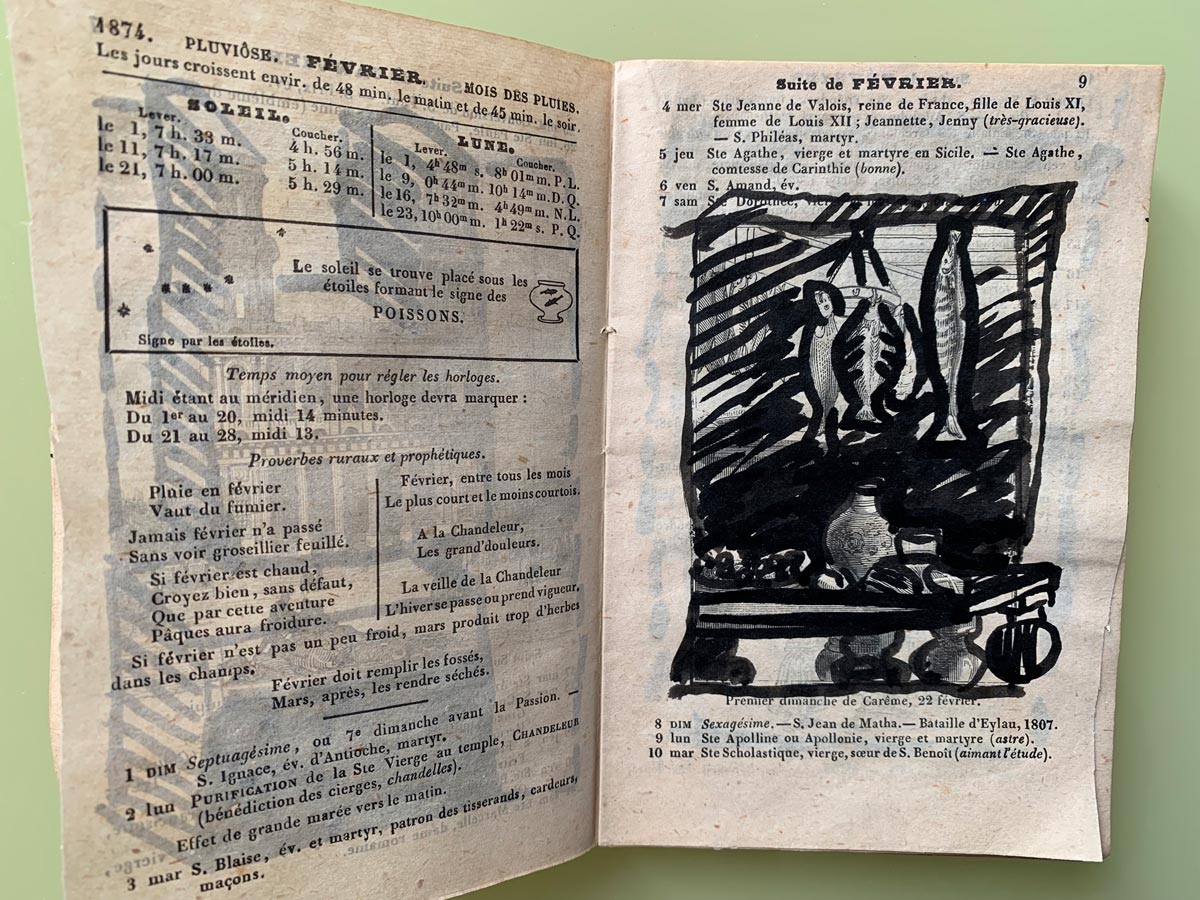 1874. PLUVIÔSE. FÉVRIER. MOIS DES PLUIES.
Les jours croissent envir. de 48 min. le matin et de 45 min. le soir.
SOLEIL.
Lever. Coucher.
le 1, 7 h. 33 m. 4 h. 56 m.
le 11, 7 h. 17 m. 5 h. 14 m.
le 21, 7 h. 00 m. 5 h. 29 m.
LUNE.
Lever. Coucher.
le 1, 4h 48m s. 8h 01m m. P. L.
le 9, 0h 44m m. 10h 14m m. D. Q.
le 16, 7h 32m m. 4h 49m m. N. L.
le 23, 10h 00m m. 1h 22m s. P. Q.
Le soleil se trouve placé sous les
étoiles formant le signe des
POISSONS.
Signe par les étoiles.
Temps moyen pour régler les horloges.
Midi étant au méridien, une horloge devra marquer :
Du 1er au 20, midi 14 minutes.
Du 21 au 28, midi 13.
Proverbes ruraux et prophétiques.
Pluie en février
Vaut du fumier.
Jamais février n'a passé
Sans voir groseillier feuillé.
Si février est chaud,
Croyez bien, sans défaut,
Que par cette aventure
Pâques aura froidure.
Février, entre tous les mois
Le plus court et le moins courtois.
A la Chandeleur,
Les grand'douleurs.
La veille de la Chandeleur
L'hiver se passe ou prend vigueur.
Si février n'est pas un peu froid, mars produit trop d'herbes
dans les champs.
Février doit remplir les fossés,
Mars, après, les rendre séchés.
1 DIM Septuagésime, ou 7e dimanche avant la Passion. —
S. Ignace, év. d'Antioche, martyr.
2 lun PURIFICATION de la Ste Vierge au temple, CHANDELEUR
(bénédiction des cierges, chandelles).
Effet de grande marée vers le matin.
3 mar S. Blaise, év. et martyr, patron des tisserands, cardeurs,
maçons.
Suite de FÉVRIER. 9
4 mer Ste Jeanne de Valois, reine de France, fille de Louis XI,
femme de Louis XII ; Jeannette, Jenny (très-gracieuse).
— S. Philéas, martyr.
5 jeu Ste Agathe, vierge et martyre en Sicile. — Ste Agathe,
comtesse de Carinthie (bonne).
6 ven S. Amand, év.
7 sam Ste Dorothée,
Premier dimanche de Carême, 22 février.
8 DIM Sexagésime. — S. Jean de Matha. — Bataille d'Eylau, 1807.
9 lun Ste Apolline ou Apollonie, vierge et martyre (astre).
10 mar Ste Scholastique, vierge, sœur de S. Benoît (aimant l'étude).